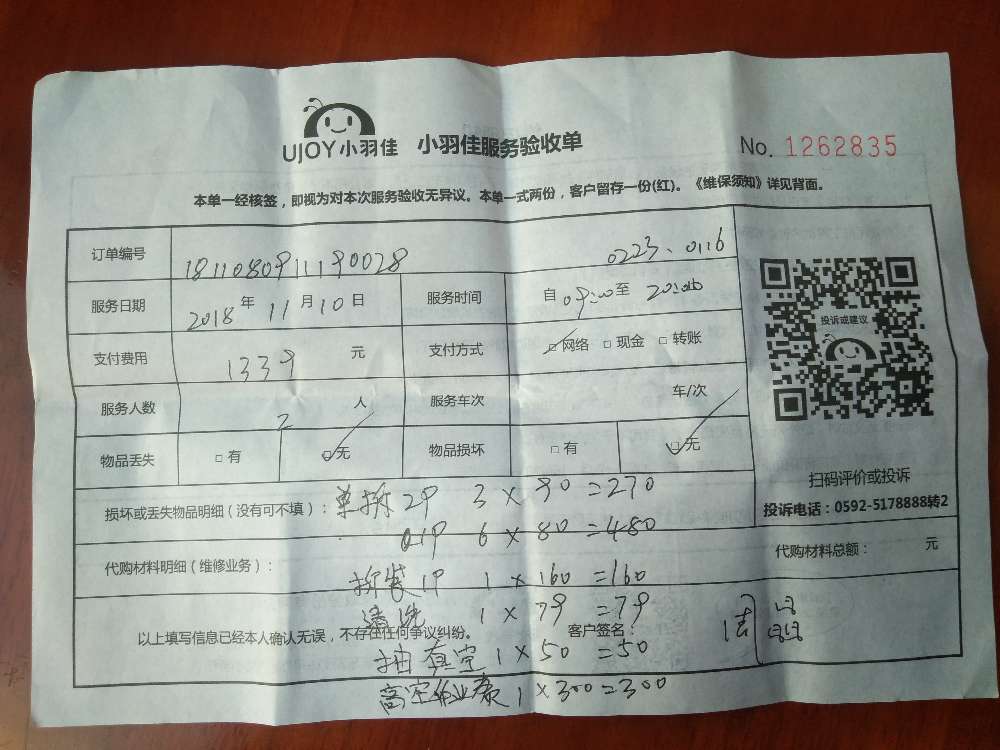 UJOY小羽佳 小羽佳服务验收单 No. 1262835
本单一经核签，即视为对本次服务验收无异议。本单一式两份，客户留存一份(红)。《维保须知》详见背面。
订单编号 18110809111190028 0223、0116
服务日期 2018年11月10日 服务时间 自09:00至20:00
支付费用 1339元 支付方式 □网络 □现金 □转账
投诉或建议
服务人数 2人 服务车次 车/次
物品丢失 □有 □无 物品损坏 □有 □无
扫码评价或投诉
损坏或丢失物品明细（没有可不填）：单拆2P 3×90=270
投诉电话：0592-5178888转2
1P 6×80=480
代购材料明细（维修业务）： 代购材料总额： 元
拆装1P 1×160=160
清洗 1×79=79
以上填写信息已经本人确认无误，不存在任何争议纠纷。 客户签名：
抽真空 1×50=50
高空作业费 1×300=300